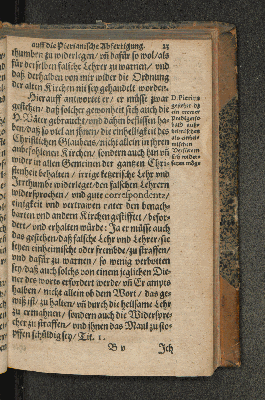 auff die Pierianische Abfertigung. 23
thumben zu widerlegen/ vñ dafür so wol/ als
für derselben falsche Lehrer zu warnen/ vnd
daß derhalben von mir wider die Ordnung
der alten Kirchen nit sey gehandelt worden.
Hierauff antwortet er/ er müsse zwar
gestehen/ daß solcher gewonheit sich auch die
H. Väter gebraucht/ vnd dahin beflissen ha-
ben/ daß so viel an jhnen/ die einhelligkeit des
Christlichen Glaubens/ nicht allein in jhren
anbefohlenen Kirchen/ sondern auch hin vñ
wider in allen Gemeinen der gantzen Chri-
stenheit behalten/ irrige ketzerische Lehr vnd
Irrthumbe widerleget/ den falschen Lehrern
widersprochen/ vnd gute correspondentz/
einigkeit vnd vertrawen vnter den benach-
barten vnd andern Kirchen gestifftet/ beför-
dert/ vnd erhalten würde: Ja er müsse auch
das gestehen/ daß falsche Lehr vnd Lehrer/ sie
seyen einheimische oder frembde/ zu straffen/
vnd dafür zu warnen/ so wenig verbotten
sey/ daß auch solchs von einem jeglichen Die-
ner des worts erfordert werde/ vñ Er ampts
halben/ nicht allein ob dem Wort/ das ge-
wiß ist/ zu halten/ vñ durch die heilsame Lehr
zu ermahnen/ sondern auch die Widerspre-
cher zu straffen/ vnd jhnen das Maul zu sto-
pffen schüldig sey/ Tit. 1.
D. Pierius
gestehet/ dz
ein trewer
so wol
B v Ich